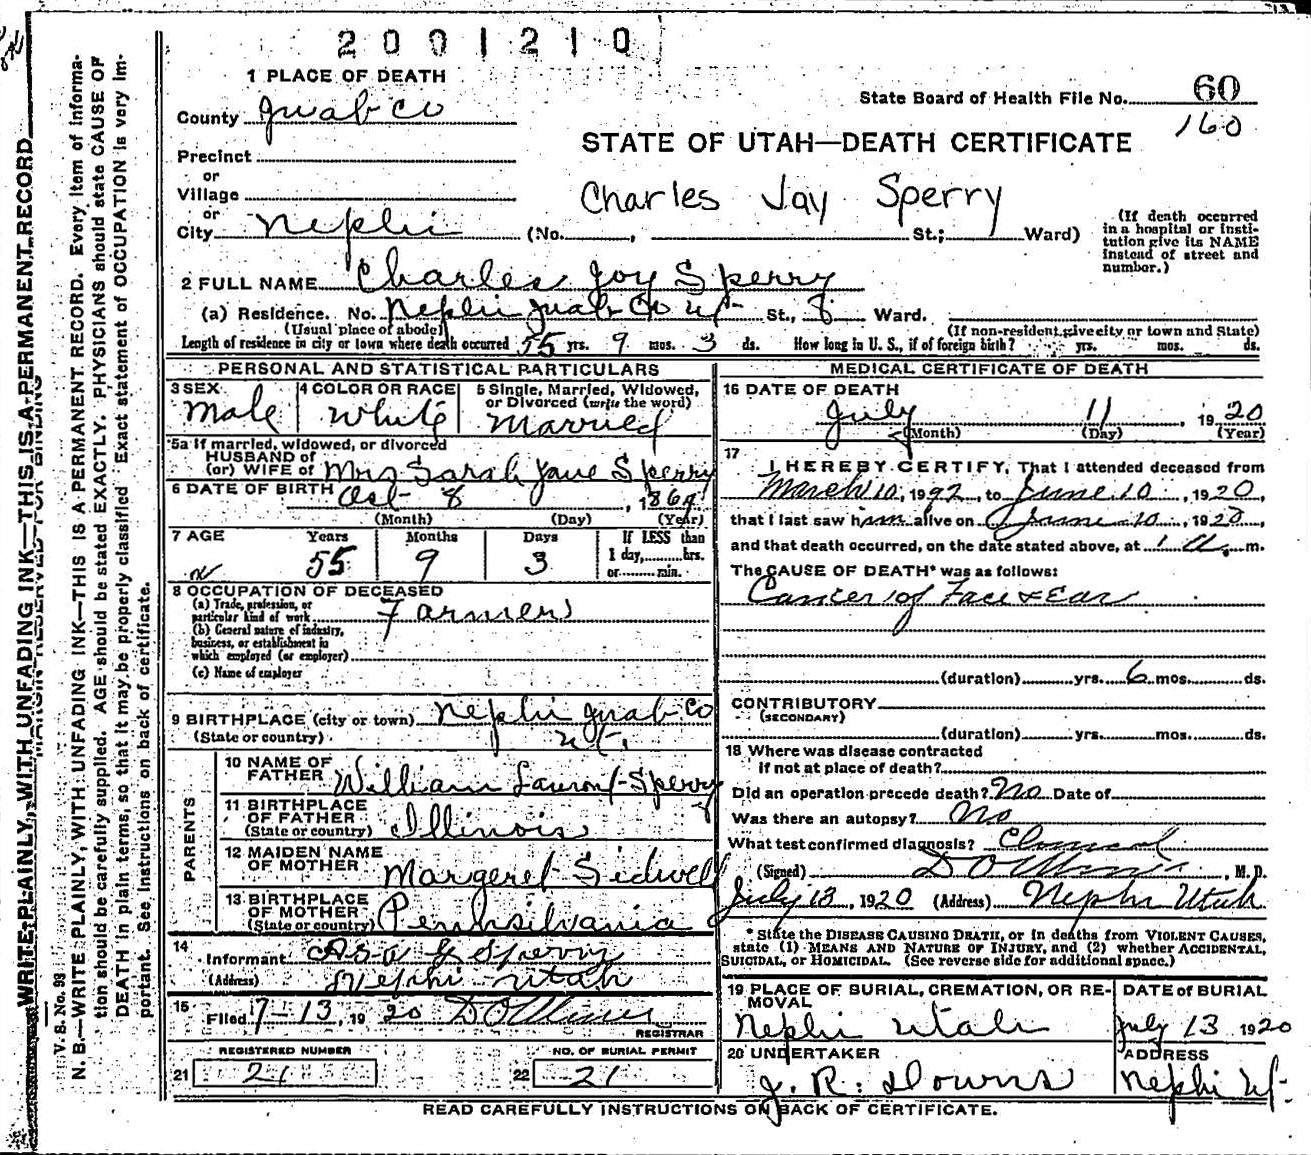 2001210
1 PLACE OF DEATH
County Juab Co
State Board of Health File No. 60
160
Precinct
or
Village
or
City Nephi (No. , St.; Ward)
STATE OF UTAH—DEATH CERTIFICATE
Charles Jay Sperry
(If death occurred
in a hospital or insti-
tution give its NAME
instead of street and
number.)
2 FULL NAME Charles Joy Sperry
(a) Residence. No. Nephi Juab Co ut St., 8 Ward.
(Usual place of abode) (If non-resident, give city or town and State)
Length of residence in city or town where death occurred 55 yrs. 9 mos. 3 ds. How long in U. S., if of foreign birth? yrs. mos. ds.
PERSONAL AND STATISTICAL PARTICULARS
3 SEX 4 COLOR OR RACE 5 Single, Married, Widowed,
or Divorced (write the word)
Male White Married
5a If married, widowed, or divorced
HUSBAND of
(or) WIFE of Mrs Sarah Jane Sperry
6 DATE OF BIRTH Oct 8, 1864
(Month) (Day) (Year)
7 AGE Years Months Days If LESS than
1 day, hrs.
or min.
55 9 3
8 OCCUPATION OF DECEASED
(a) Trade, profession, or
particular kind of work Farmer
(b) General nature of industry,
business, or establishment in
which employed (or employer)
(c) Name of employer
9 BIRTHPLACE (city or town) Nephi Juab Co
(State or country) ut.
PARENTS
10 NAME OF
FATHER William Sperry
11 BIRTHPLACE
OF FATHER
(State or country) Illinois
12 MAIDEN NAME
OF MOTHER Margeret Sidwell
13 BIRTHPLACE
OF MOTHER
(State or country) Pennhsilvania
14
Informant Asa G Sperry
(Address) Nephi Utah
15
Filed 7-13, 1920
REGISTRAR
REGISTERED NUMBER NO. OF BURIAL PERMIT
21 21 22 21
MEDICAL CERTIFICATE OF DEATH
16 DATE OF DEATH
July 11, 1920
(Month) (Day) (Year)
17
I HEREBY CERTIFY, That I attended deceased from
March 10, 1992, to June 10, 1920,
that I last saw him alive on June 10, 1920,
and that death occurred, on the date stated above, at 1 a.m.
The CAUSE OF DEATH* was as follows:
Cancer of Face & Ear
(duration) yrs. 6 mos. ds.
CONTRIBUTORY
(SECONDARY)
(duration) yrs. mos. ds.
18 Where was disease contracted
if not at place of death?
Did an operation precede death? No Date of
Was there an autopsy? No
What test confirmed diagnosis? Clinical
(Signed) , M. D.
July 13, 1920 (Address) Nephi Utah
* State the DISEASE CAUSING DEATH, or in deaths from VIOLENT CAUSES,
state (1) MEANS AND NATURE OF INJURY, and (2) whether ACCIDENTAL,
SUICIDAL, or HOMICIDAL. (See reverse side for additional space.)
19 PLACE OF BURIAL, CREMATION, OR RE-
MOVAL
Nephi Utah
DATE of BURIAL
July 13 1920
20 UNDERTAKER
J. R. Downs
ADDRESS
Nephi Ut-
READ CAREFULLY INSTRUCTIONS ON BACK OF CERTIFICATE.
WRITE PLAINLY, WITH UNFADING INK—THIS IS A PERMANENT RECORD
MARGIN RESERVED FOR BINDING
V. S. No. 93
N. B.—WRITE PLAINLY, WITH UNFADING INK—THIS IS A PERMANENT RECORD. Every item of informa-
tion should be carefully supplied. AGE should be stated EXACTLY. PHYSICIANS should state CAUSE OF
DEATH in plain terms, so that it may be properly classified Exact statement of OCCUPATION is very im-
portant. See instructions on back of certificate.